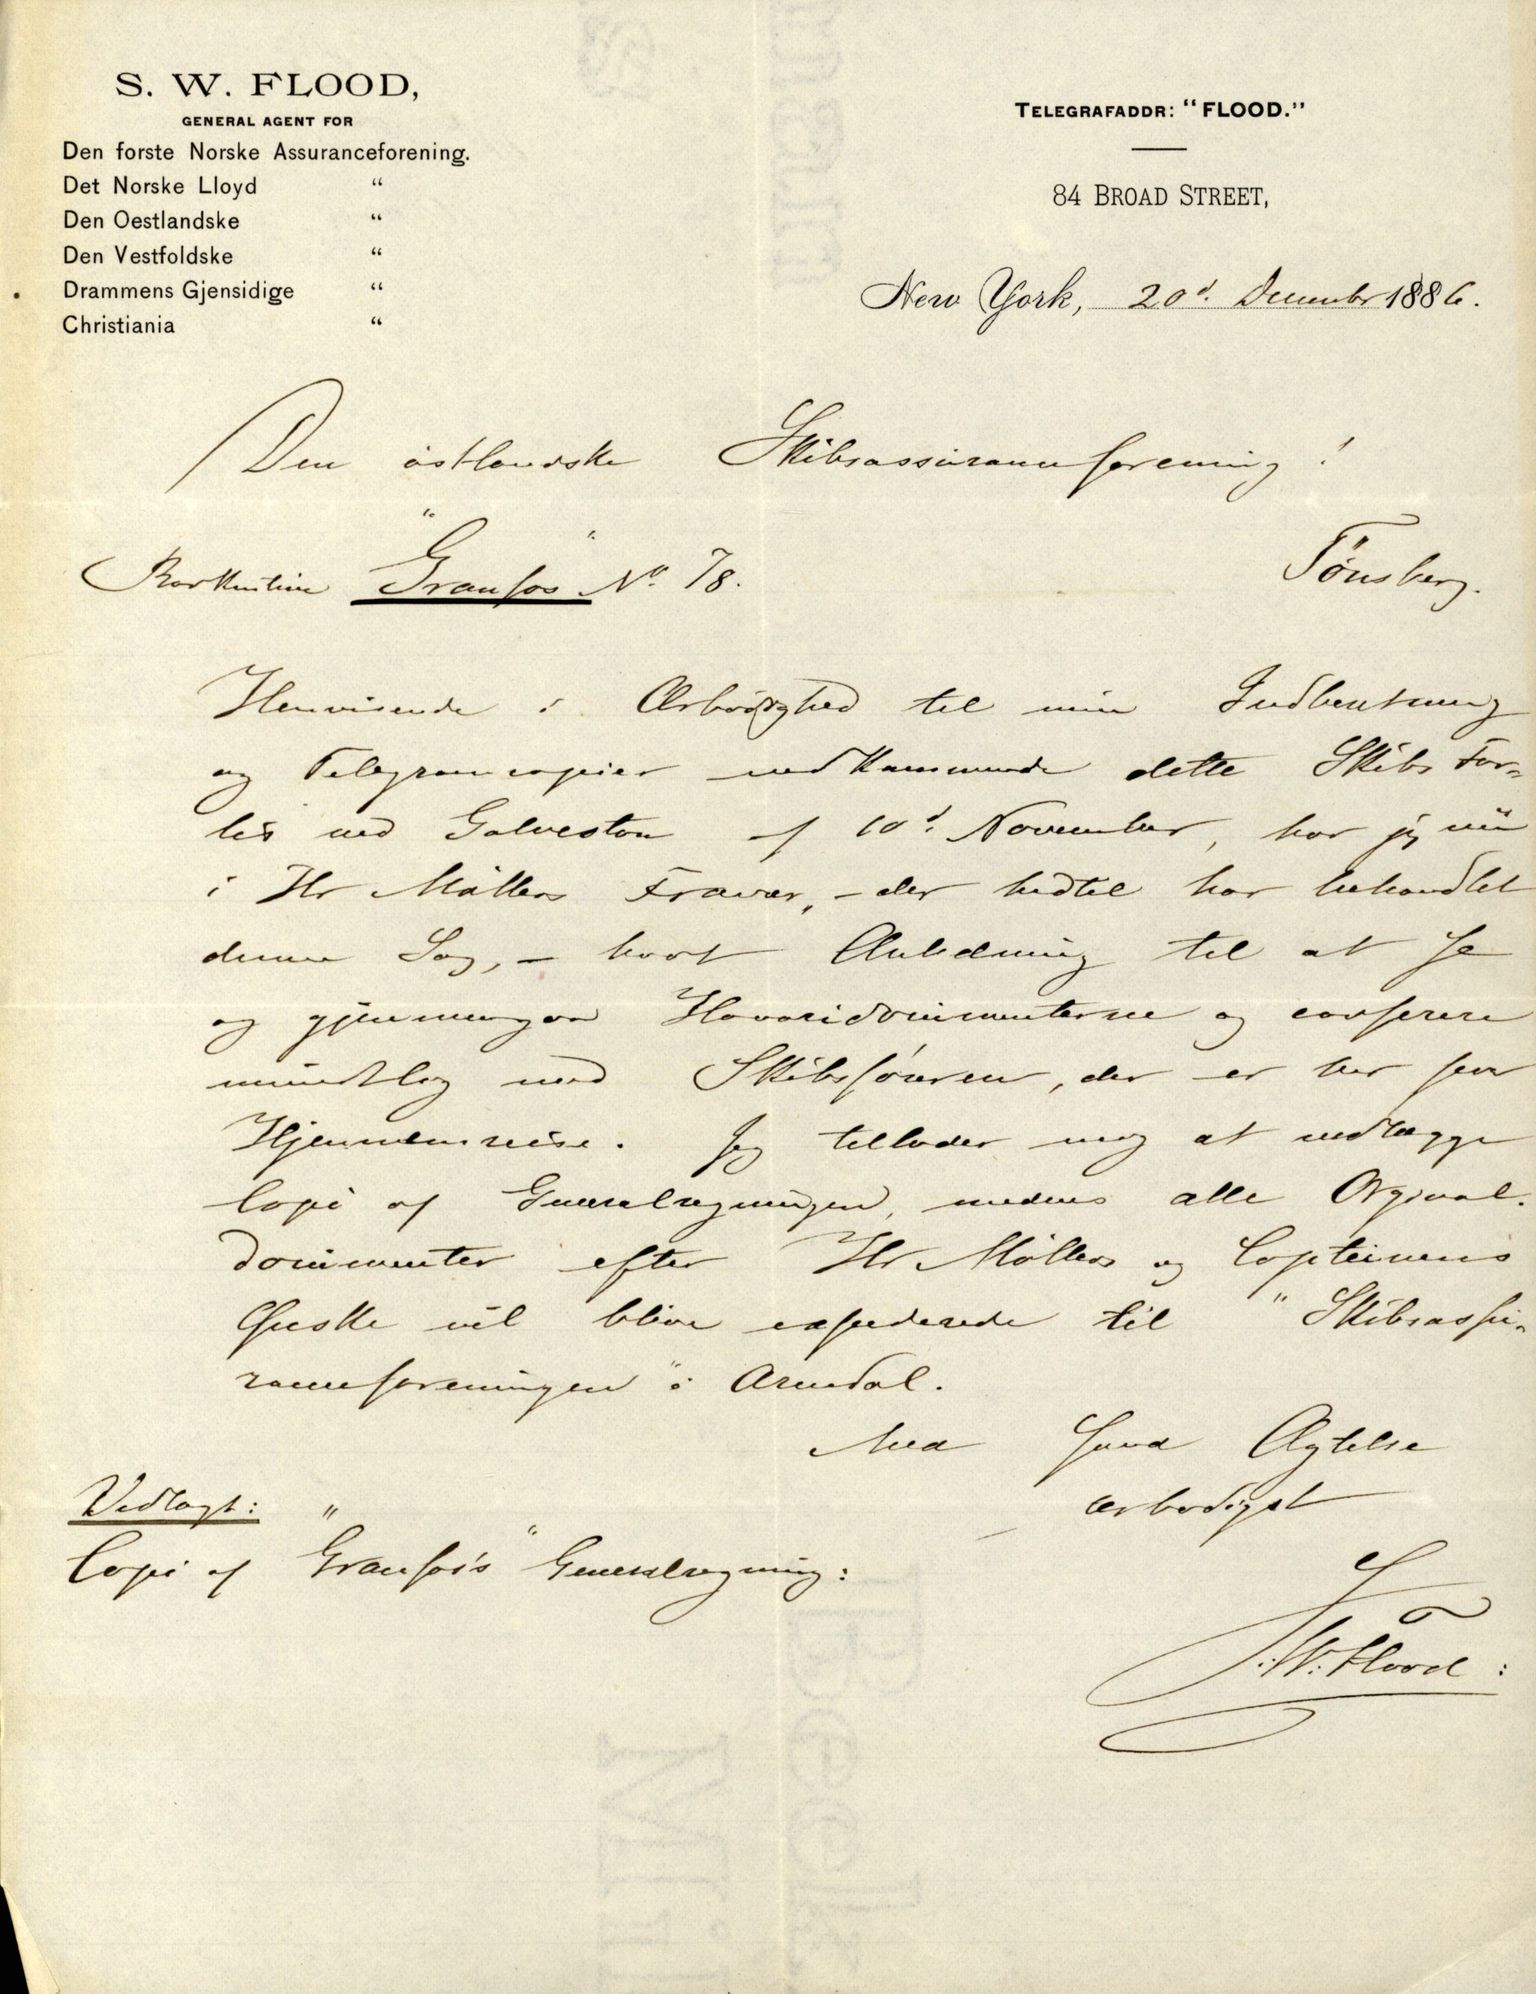 S. W. FLOOD,
GENERAL AGENT FOR
Den forste Norske Assuranceforening.
Det Norske Lloyd "
Den Oestlandske "
Den Vestfoldske "
Drammens Gjensidige "
Christiania "
TELEGRAFADDR: "FLOOD."
84 BROAD STREET,
New York, 20d. December 1886.
Den østlandske Skibsassuranceforening!
Tönsberg.
Barkentine "Granfos" No 78.
Henvisende i Ærbödighed til min Indberetning
og Telegramcopier vedkommende dette Skibs For-
lis ved Galveston af 10d. November, har jeg nu
i Hr Möllers Fravær, - der hidtil har behandlet
denne Sag, - havt Anledning til at se
og gjennemgaa Havaridocumenterne og conferere
mundtlig med Skibsföreren, der er her paa
Hjemreise. Jeg tillader mig at vedlægge
Copi af Generalregningen, medens alle Orginal-
documenter efter Hr Möllers og Capteinens
Ønske vil blive expederede til "Skibsassu-
ranceforeningen" i Arendal.
Med sand Agtelse
ærbödigst
S.W. Flood:
Vedlagt:
Copi af "Granfos's" Generalregning: